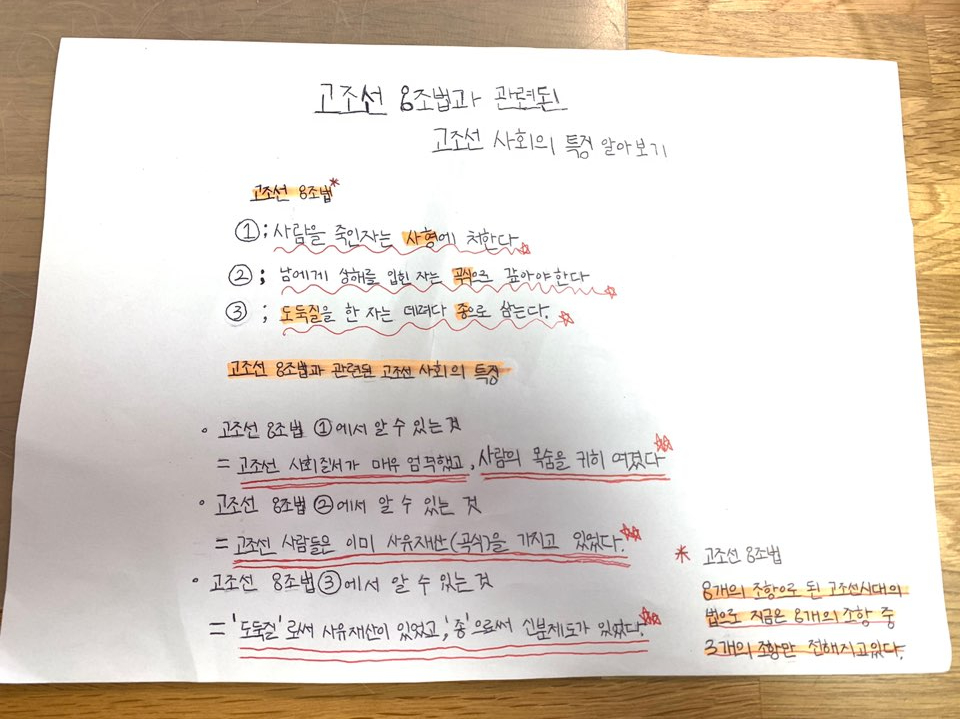 고조선 8조법과 관련된
고조선 사회의 특징 알아보기
고조선 8조법*
①; 사람을 죽인자는 사형에 처한다.
②; 남에게 상해를 입힌 자는 곡식으로 갚아야한다
③; 도둑질을 한 자는 데려다 종으로 삼는다.
고조선 8조법과 관련된 고조선 사회의 특징
• 고조선 8조법 ①에서 알 수 있는것
= 고조선 사회질서가 매우 엄격했고, 사람의 목숨을 귀히 여겼다
• 고조선 8조법 ②에서 알 수 있는 것
= 고조선 사람들은 이미 사유재산(곡식)을 가지고 있었다.
• 고조선 8조법 ③에서 알 수 있는것
= '도둑질'로써 사유재산이 있었고, '종'으로써 신분제도가 있었다.
* 고조선 8조법
8개의 조항으로 된 고조선시대의
법으로 지금은 8개의 조항 중
3개의 조항만 전해지고있다.